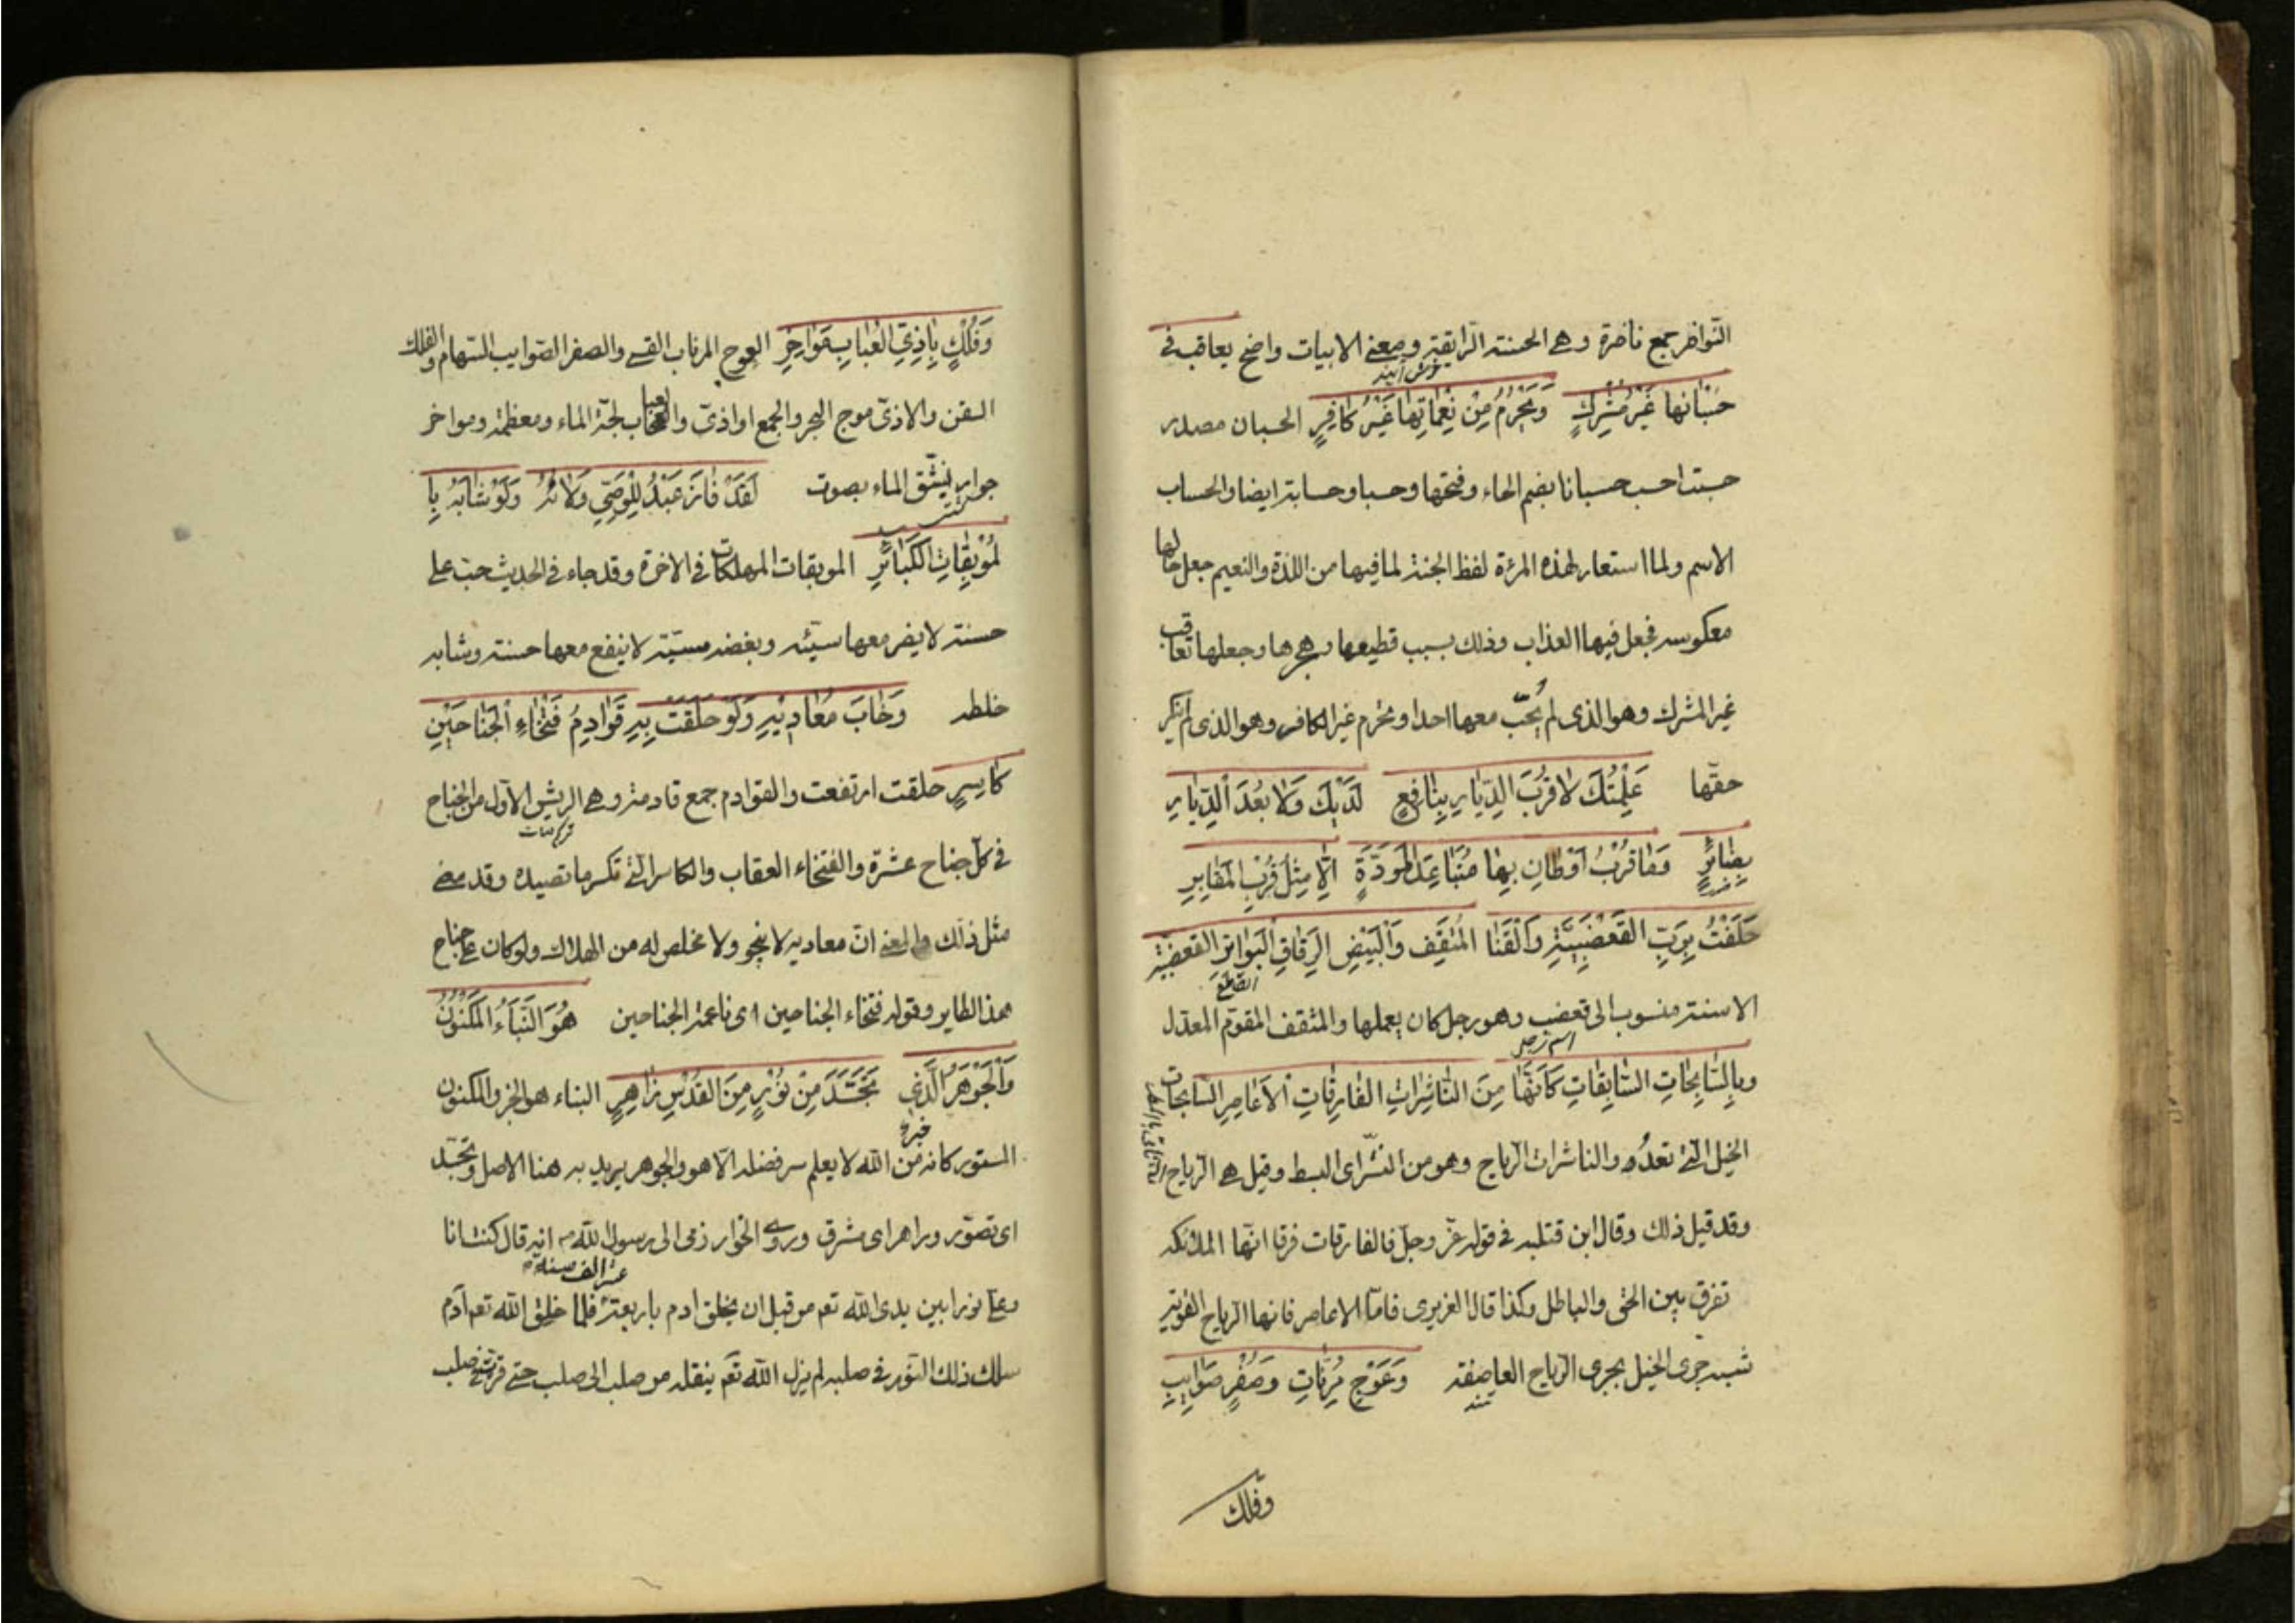 النواضر جمع ناضرة وهي الحسنة الرايقة ومعنى الابيات واضح يعاقب في
حُسْبٰانها غَيْرُ مُشْرِكٍ وَيُحْرَمُ مِنْ نَعْمٰائِهٰا غَيْرُ كٰافِرٍ الحسبان مصدر
حسبت احسب حسبانا بضم الحاء وفتحها وحسبا وحسابة ايضا والحساب
الاسم ولما استعار لهذه المرءة لفظ الجنة لما فيها من اللذة والنعيم جعل حالها
معكوسه فجعل فيها العذاب وذلك بسبب قطيعها وهجرها وجعلها تعاقب
غير المشرك وهو الذى لم يُحبّ معها احدا وتحرم غير الكافر وهو الذى لم ينكر
حقّها عَلِمْتُكَ لاٰ قُرْبَ الدِّيٰارِ بِنٰافِعٍ لَدَيْكَ وَلاٰ بُعْدَ اَلدِّيٰارِ
بِضٰائِرٍ وَمٰا قُرْبُ اَوْطٰانٍ بِهٰا مُتَبٰاعِدُ المَوَدَّةِ اِلّاٰ مِثْلُ قُرْبِ المَقٰابِرِ
حَلَفْتُ بِرَبِّ القَعْضَبِيَّةِ وَالْقَنٰا المُثَقَّفِ وَالْبَيْضِ الرِّقٰاقِ الْبَوٰاتِرِ القعضبية
القاطع
الاسنة منسوب الى قعضب وهو رجل كان يعملها والمثقف المقوم المعدل
اسم رجل
وبِالسّٰابِحٰاتِ السّٰابِقٰاتِ كَاَنَّهٰا مِنَ النّٰاشِرٰاتِ الفٰارِقٰاتِ اْلاَعٰاصِرِ السابحات
الخيل التي تعدُو والناشرات الرياح وهو من النشر اى البسط وقيل هي الرياح
وقد قيل ذلك وقال ابن قتلبه في قوله عزّ وجلّ فالفارقات فرقا انّها الملئكه
تفرق بين الحق والباطل وكذا قال العزيرى فامّا الاعاصر فانها الرياح القوية
شبه جرى الخيل بجرى الرياح العاصفة وَعَوْجٍ مُرِنّٰاتٍ وَصُفْرٍ صَوٰايِبٍ
وفلك
وَفُلْكٍ بِاٰذِيِّ العُبٰابِ مَوٰاخِرِ العوج المرنات القسي والصفر الصوايب السهام والفلك
السفن والاذىّ موج البحر والجمع اواذىّ والعباب لجّة الماء ومعظمه ومواخر
جوار تشق الماء بصوت لَقَدْ فٰازَ عَبْدٌ لِلْوَصِيِّ وَلاٰئُهُ وَلَوْ شٰابَهُ بِا
لمُوْبِقٰاتِ الكَبٰائِرِ الموبقات المهلكات في الاخرة وقد جاء في الحديث حب علي
حسنة لا يضر معها سيّئه وبغضه سيّئة لا ينفع معها حسنة وشابه
خلطه وَخٰابَ مُعٰادِيْهِ وَلَوْ حَلَّقَتْ بِهِ قَوٰادِمُ فَتْخٰاءِ اْلجَنٰاحَيْنِ
كٰاسِرٍ حلقت ارتفعت والقوادم جمع قادمة وهي الريش الاول من الجناح
في كل جناح عشرة والفتخاء العقاب والكاسر التي تكسر ما تصيده وقد مضى
مثل ذلك والمعنى انّ معاديه لا ينجو ولا مخلص له من الهلاك ولو كان على جناح
هذا الطاير وقوله فتخاء الجناحين اى ناعمة الجناحين هُوَ النَّبَاءُ المَكْنُوْنُ
وَالْجَوْهَرُ الَّذِي تَجَسَّدَ مِنْ نُوْرٍ مِنَ القُدْسِ زٰاهِرٍ النباء هو الخبر والمكنون
المستور كانه خبره من الله لا يعلم سر فضله الّا هو والجوهر يريد به هنا الاصل وتجسد
اى تصوّر وزاهر اى مشرق وروى الخوارزمى الى رسول الله انه قال كنت انا
وعلي نورا بين يدى الله تعم من قبل ان يخلق ادم باربعة عشر الف سنة فلما خلق الله تعم آدم
سلك ذلك النور في صلبه لم يزل الله تعم ينقله من صلب الى صلب حتى صلب